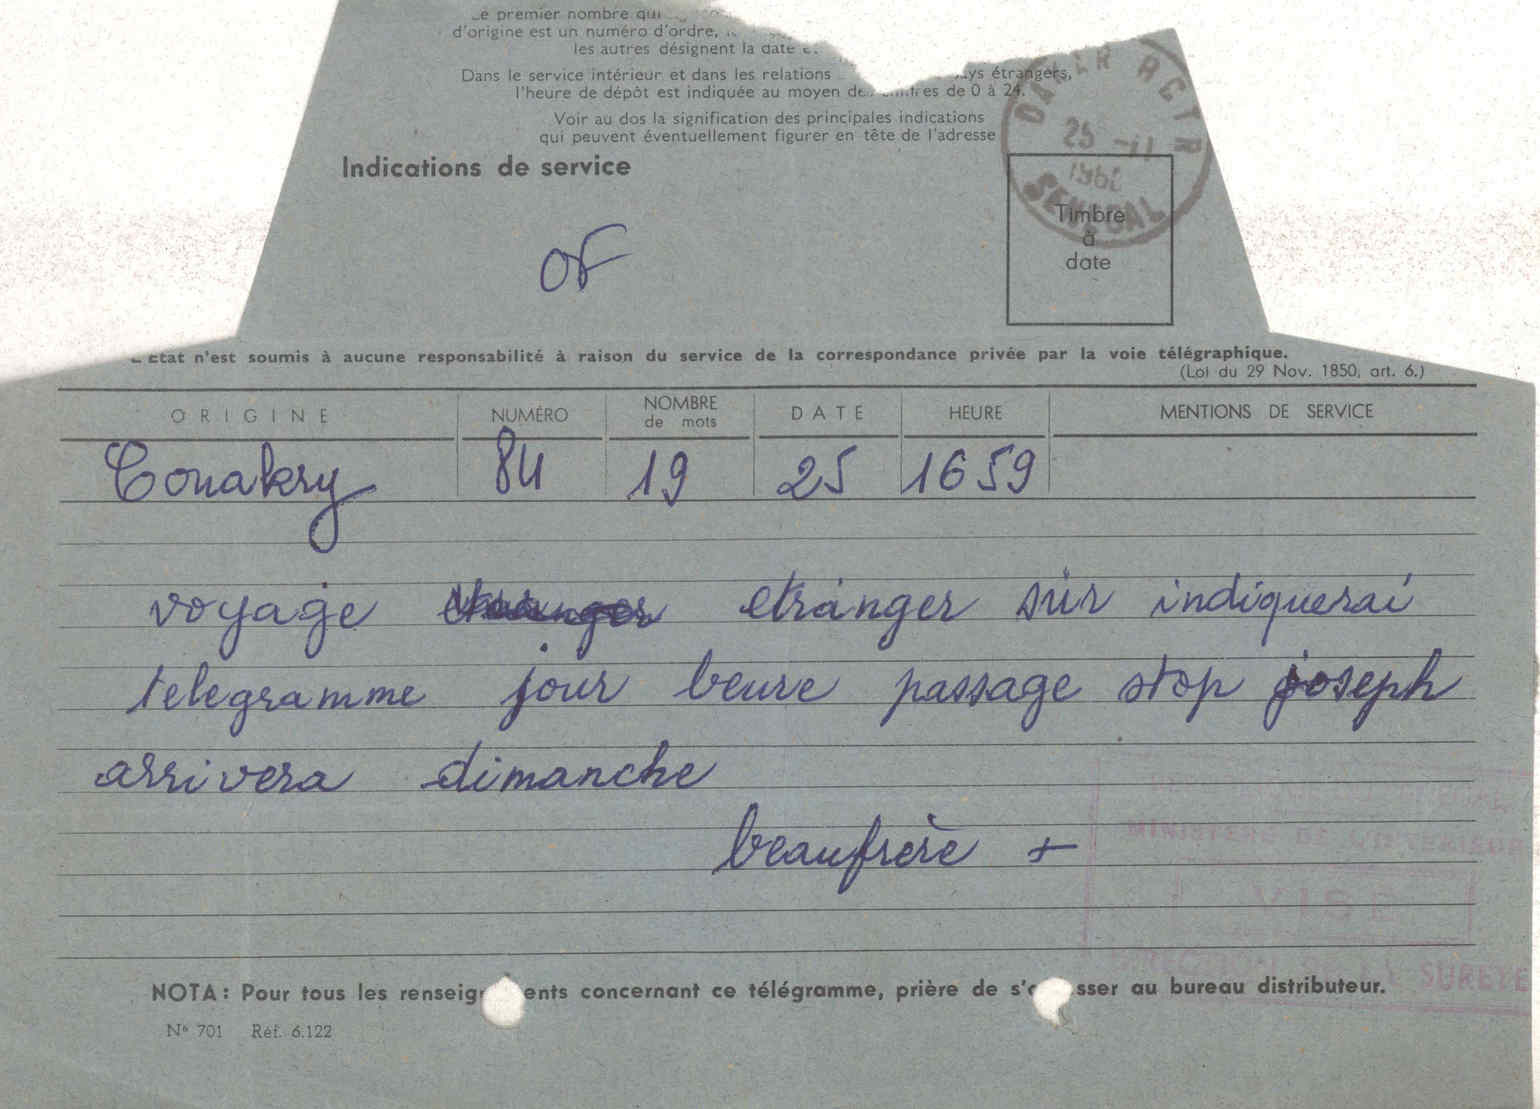 premier nombre qui
d'origine est un numéro d'ordre,
les autres désignent la date
Dans le service intérieur et dans les relations étrangers,
l'heure de dépôt est indiquée au moyen de 0 à 24.
Voir au dos la signification des principales indications
qui peuvent éventuellement figurer en tête de l'adresse
DAKAR RCTR
25 -11
SENEGAL
Indications de service
Timbre
à
date
OF
Etat n'est soumis à aucune responsabilité à raison du service de la correspondance privée par la voie télégraphique.
(Loi du 29 Nov. 1850, art. 6.)
ORIGINE NUMÉRO NOMBRE de mots DATE HEURE MENTIONS DE SERVICE
Conakry 84 19 25 1659
voyage etranger sur indiquerai
telegramme jour heure passage stop joseph
arrivera dimanche
beaufrère +
MINISTERE DE L'INTERIEUR
VISE
DIRECTION DE LA SURETE
NOTA : Pour tous les renseig ents concernant ce télégramme, prière de s' sser au bureau distributeur.
N° 701 Réf. 6.122